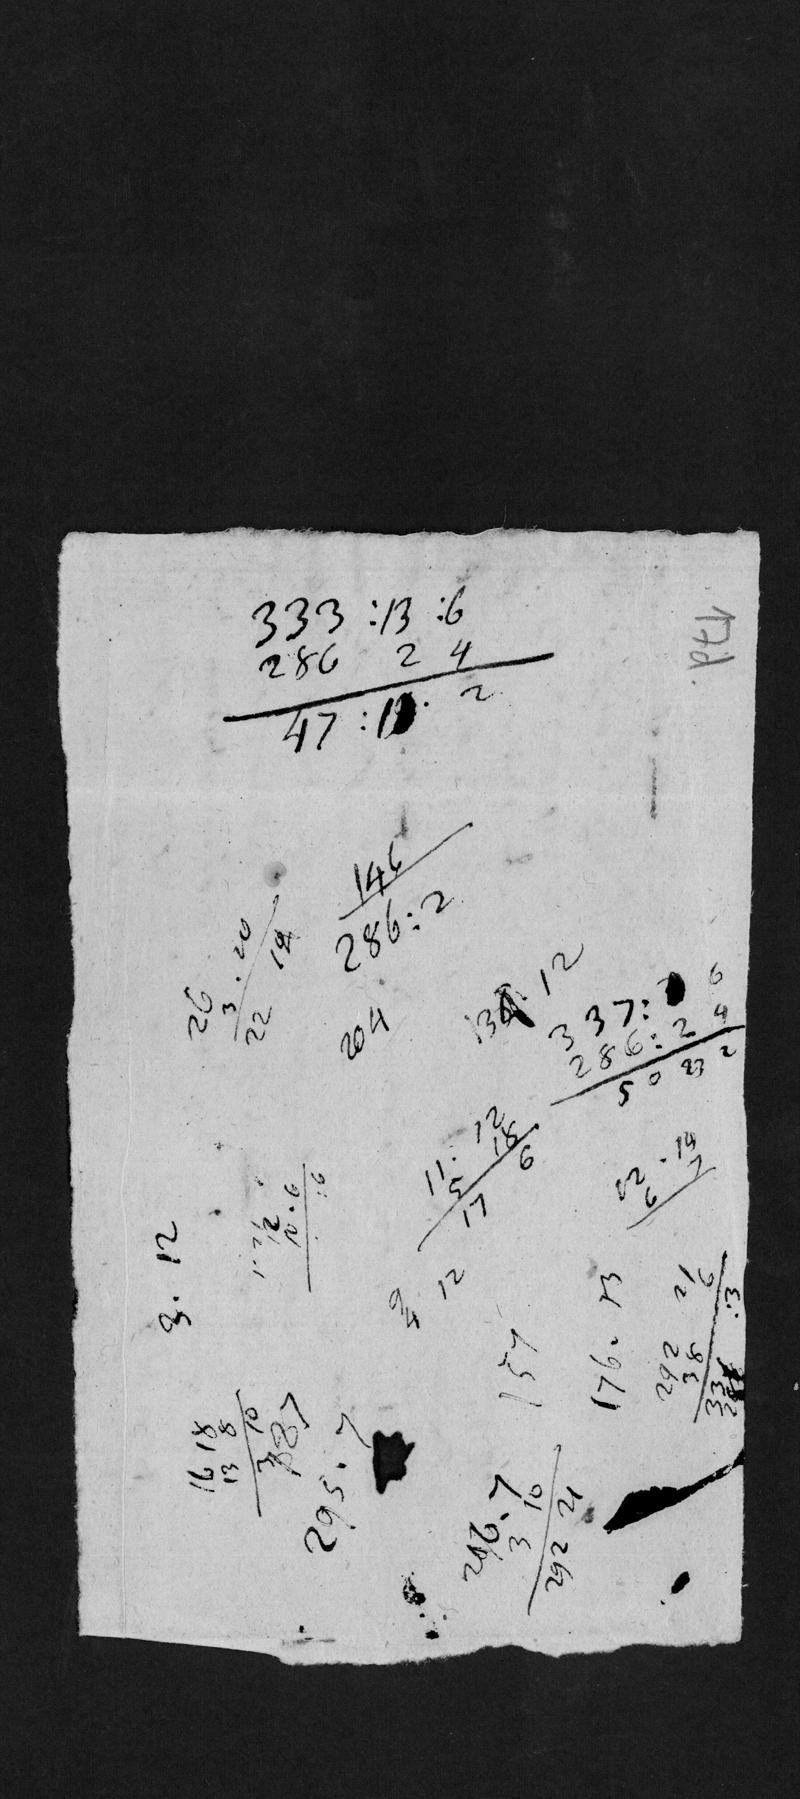 333 :13 :6
286 2 4
47 :1 . 2
179.
146
286:2
26
3.20
22 19
204
12
337: 6
286: 2 4
5 0 23 2
11. 12
5 18
17 6
22.19
6 7
9. 12
12.6
:6
9 12
4
157
176.13
292 21
38 6
33 :3
16 18
13 8
3 10
295.7
296.7
3 10
292 21